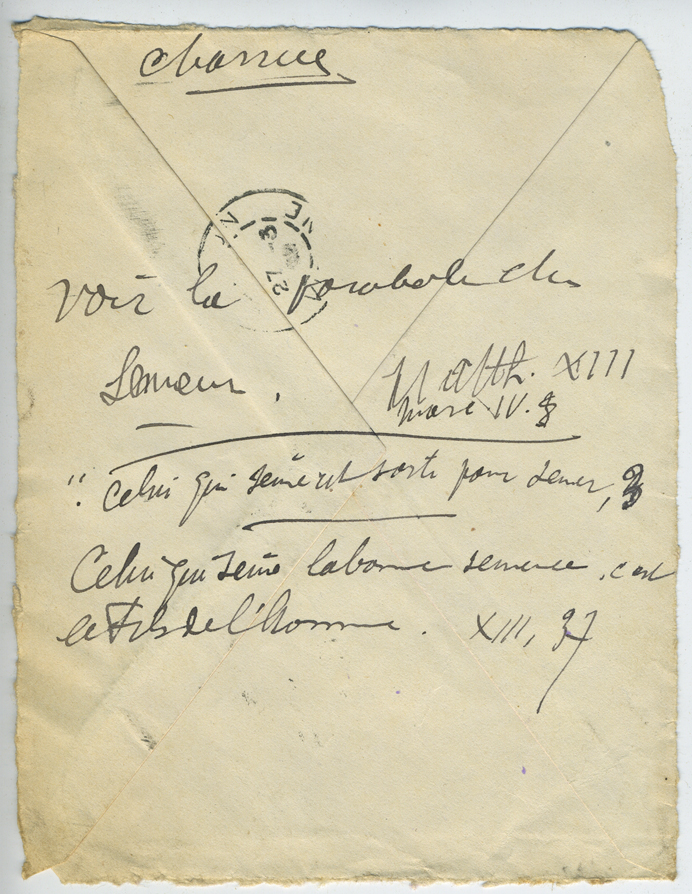 Charrue
Voir la parabole du
Semeur.
Matth. XIII
Marc IV. 3
"Celui qui sème est sorti pour semer, 3
Celui qui sème la bonne semence, c'est
le Fils de l'homme. XIII, 37
NE
13
27